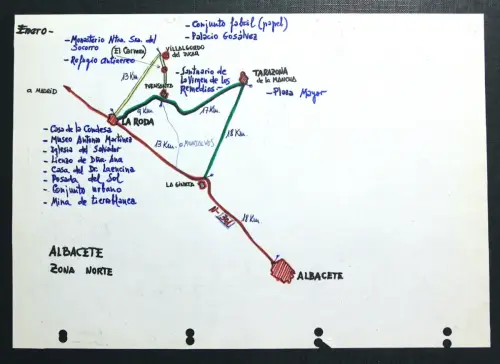 Enero-
- Conjunto fabril (papel)
- Palacio Gosálvez
- Monasterio Ntra. Sra. del
Socorro
(El Carmen)
- Refugio antiaéreo
VILLALGORDO
DEL JUCAR
- Santuario de
la Virgen de los
Remedios -
TARAZONA
DE LA MANCHA
- Plaza Mayor
13 Km.
FUENSANTA
a MADRID
LA RODA
9 Km.
17 Km.
- Casa de la Condesa
- Museo Antonio Martínez
- Iglesia del Salvador
- Lienzo de Dña. Ana
- Casa del Dr. La encina
- Posada del Sol
- Conjunto urbano
- Mina de tierrablanca
13 Km.
a MONTALVOS
18 Km.
LA GINETA
N-301
18 Km.
ALBACETE
ZONA NORTE
ALBACETE